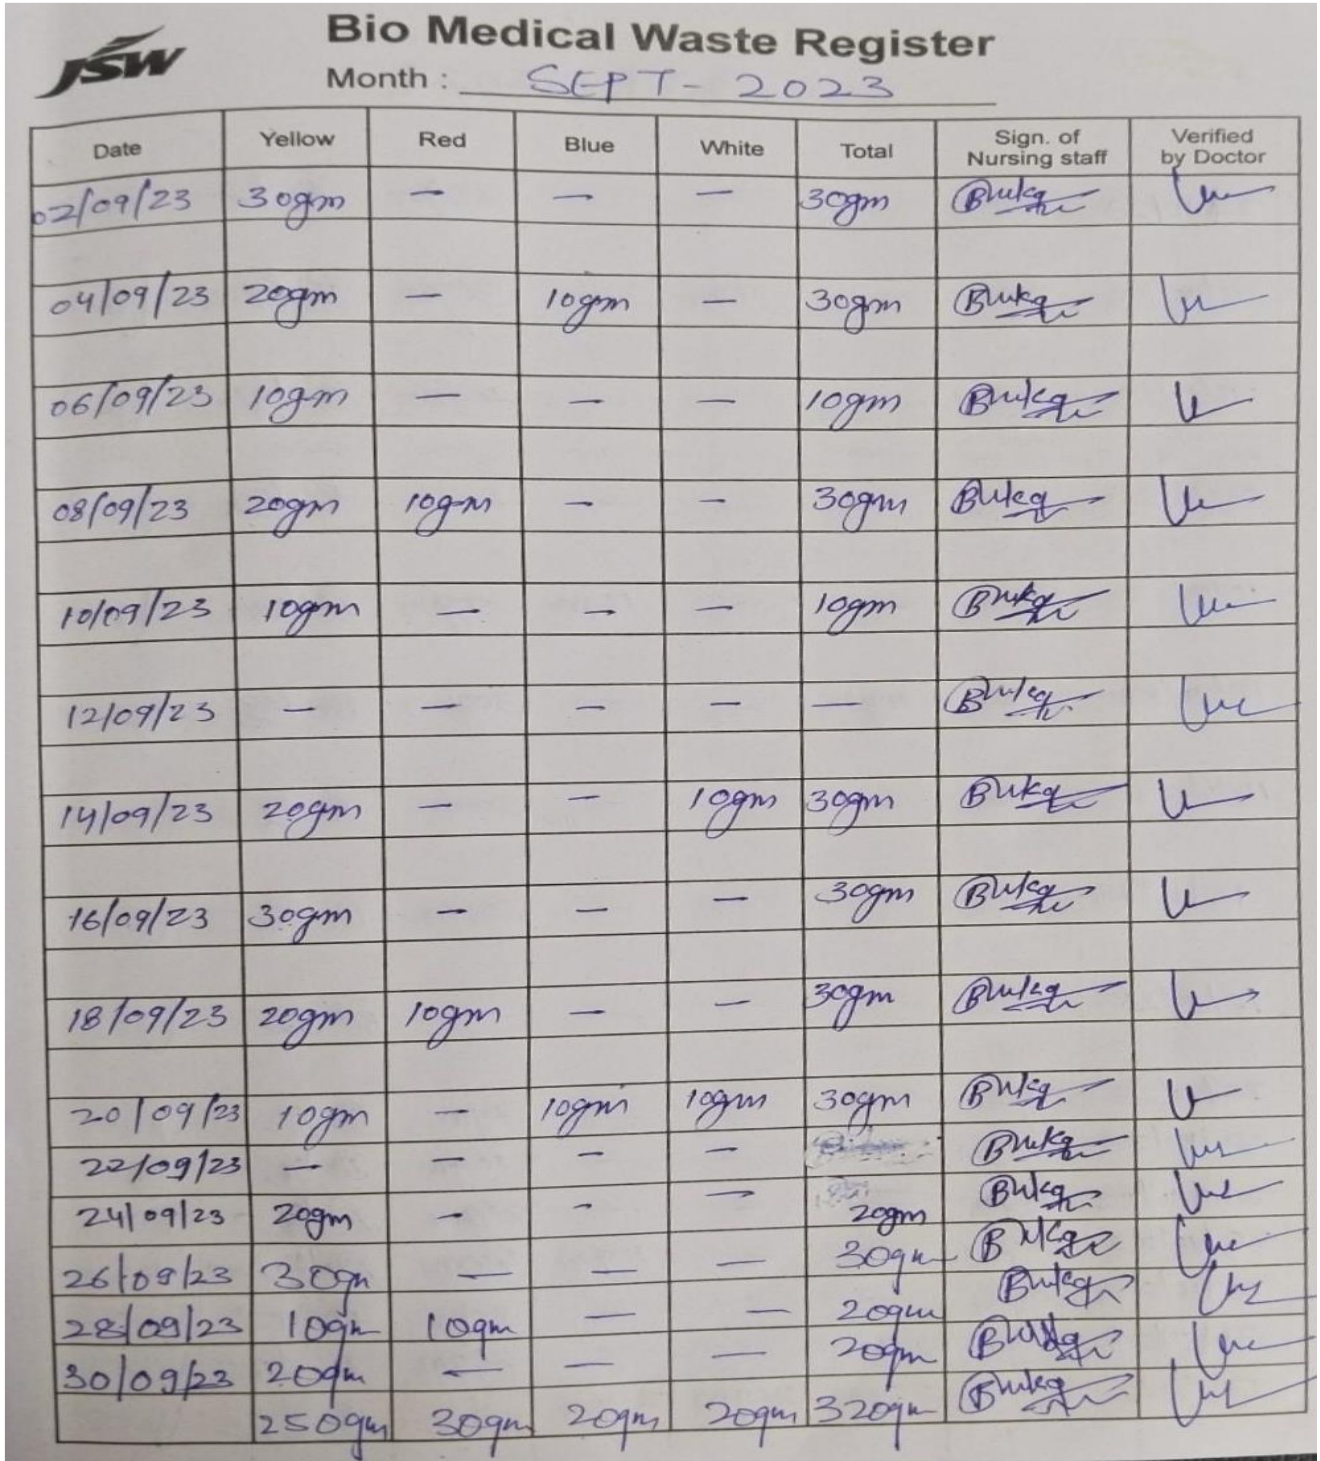 JSW
Bio Medical Waste Register
Month : SEPT - 2023
Date Yellow Red Blue White Total Sign. of Nursing staff Verified by Doctor
02/09/23 30gm — — — 30gm
04/09/23 20gm — 10gm — 30gm
06/09/23 10gm — — — 10gm
08/09/23 20gm 10gm — — 30gm
10/09/23 10gm — — — 10gm
12/09/23 — — — — —
14/09/23 20gm — — 10gm 30gm
16/09/23 30gm — — — 30gm
18/09/23 20gm 10gm — — 30gm
20/09/23 10gm — 10gm 10gm 30gm
22/09/23 — — — —
24/09/23 20gm — - — 20gm
26/09/23 30gm — — — 30gm
28/09/23 10gm 10gm — — 20gm
30/09/23 20gm — — — 20gm
250gm 30gm 20gm 20gm 320gm